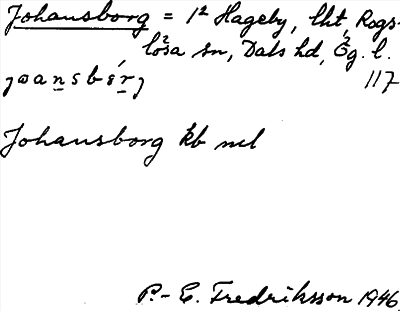 Johansborg = 1² Hageby, lht, Rogs-
lösa sn, Dals hd, Ög. l.
117
Johansborg kb ml
P.-E. Fredriksson 1946.